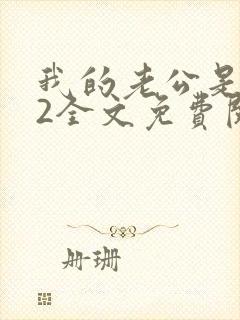 我的老公是
2全文免費閱
册珊